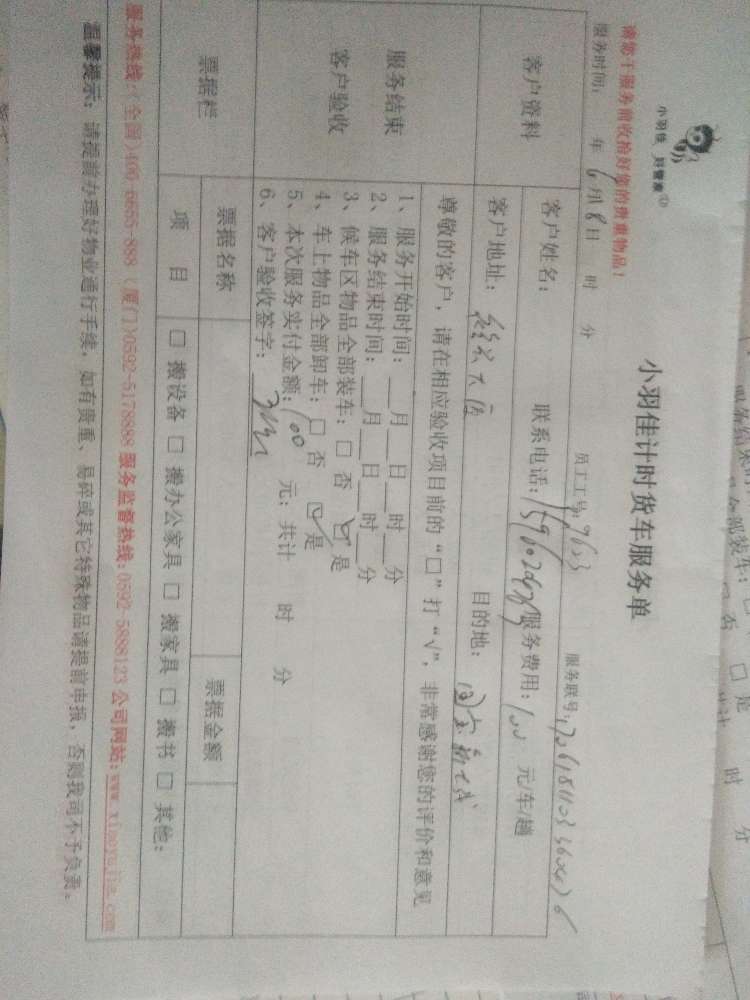 小羽佳 好管家
小羽佳计时货车服务单
请您于服务前收拾好您的贵重物品！
服务时间： 年 6月18日 时 分 员工工号 服务联号：
客户资料 客户姓名： 联系电话： 服务费用：100 元/车/趟
客户地址： 目的地：
服务结束客户验收
尊敬的客户，请在相应验收项目前的“□”打“√”，非常感谢您的评价和意见
1、服务开始时间：__月__日__时__分
2、服务结束时间：__月__日__时__分
3、候车区物品全部装车：□ 否 ☑ 是
4、车上物品全部卸车：□ 否 ☑ 是
5、本次服务实付金额：100 元；共计 时 分
6、客户验收签字：
票据栏 票据名称 票据金额
项 目 □ 搬设备 □ 搬办公家具 □ 搬家具 □ 搬书 □ 其他：
服务热线：（全国）400-6655-888 （厦门）0592-5178888 服务监督热线：0592-5888123 公司网站：www.xiaoyujia.com
温馨提示：请提前办理好物业通行手续，如有贵重、易碎或其它特殊物品请提前申报，否则我司不予负责。